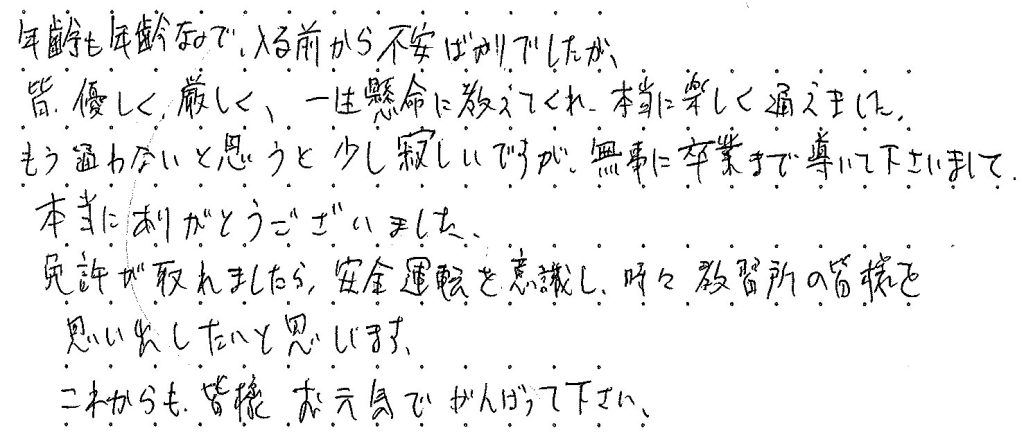 年齢も年齢なので、入る前から不安ばかりでしたが、
皆、優しく、厳しく、一生懸命に教えてくれ、本当に楽しく通えました。
もう通わないと思うと少し寂しいですが、無事に卒業まで導いて下さいまして、
本当にありがとうございました。
免許が取れましたら、安全運転を意識し、時々教習所の皆様を
思い出したいと思います。
これからも、皆様お元気でがんばって下さい。